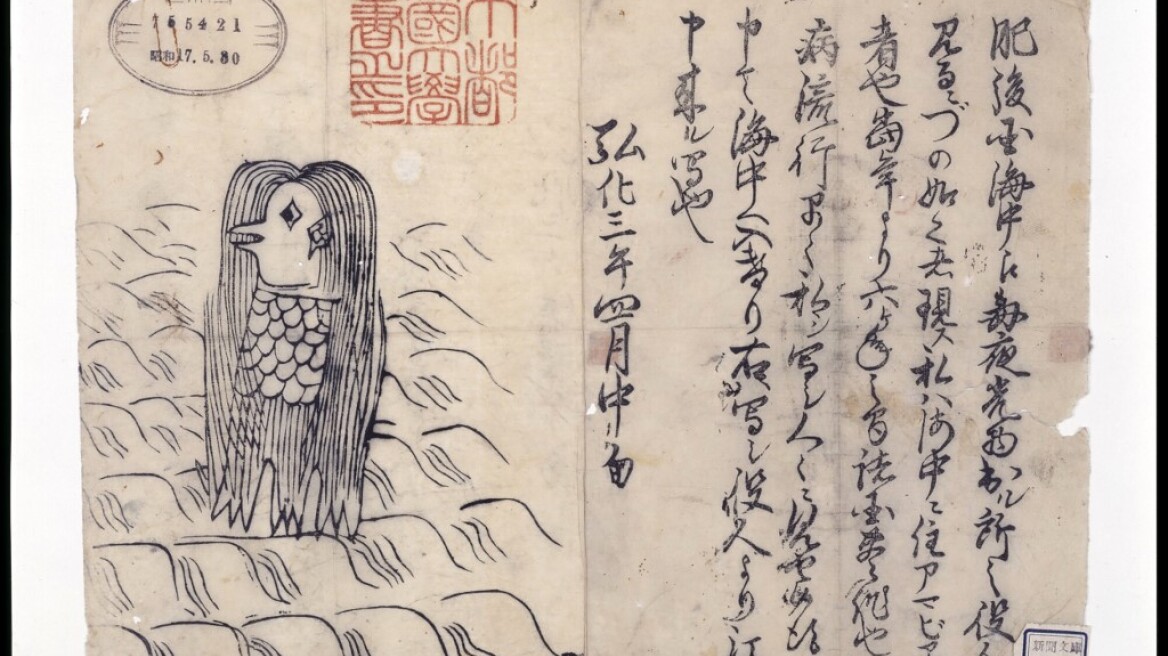 肥後国海中江毎夜光物出ル所之役人
見るニづの如之者現ス私ハ海中ニ住アマビヱ
者也当年より六ヶ年之間諸国豊作也
病流行早々私シ写シ人々ニ見せ候
申て海中へ入けり右写シ役人より江
申来ル写也
弘化三年四月中旬
昭和17.5.30
新聞文庫